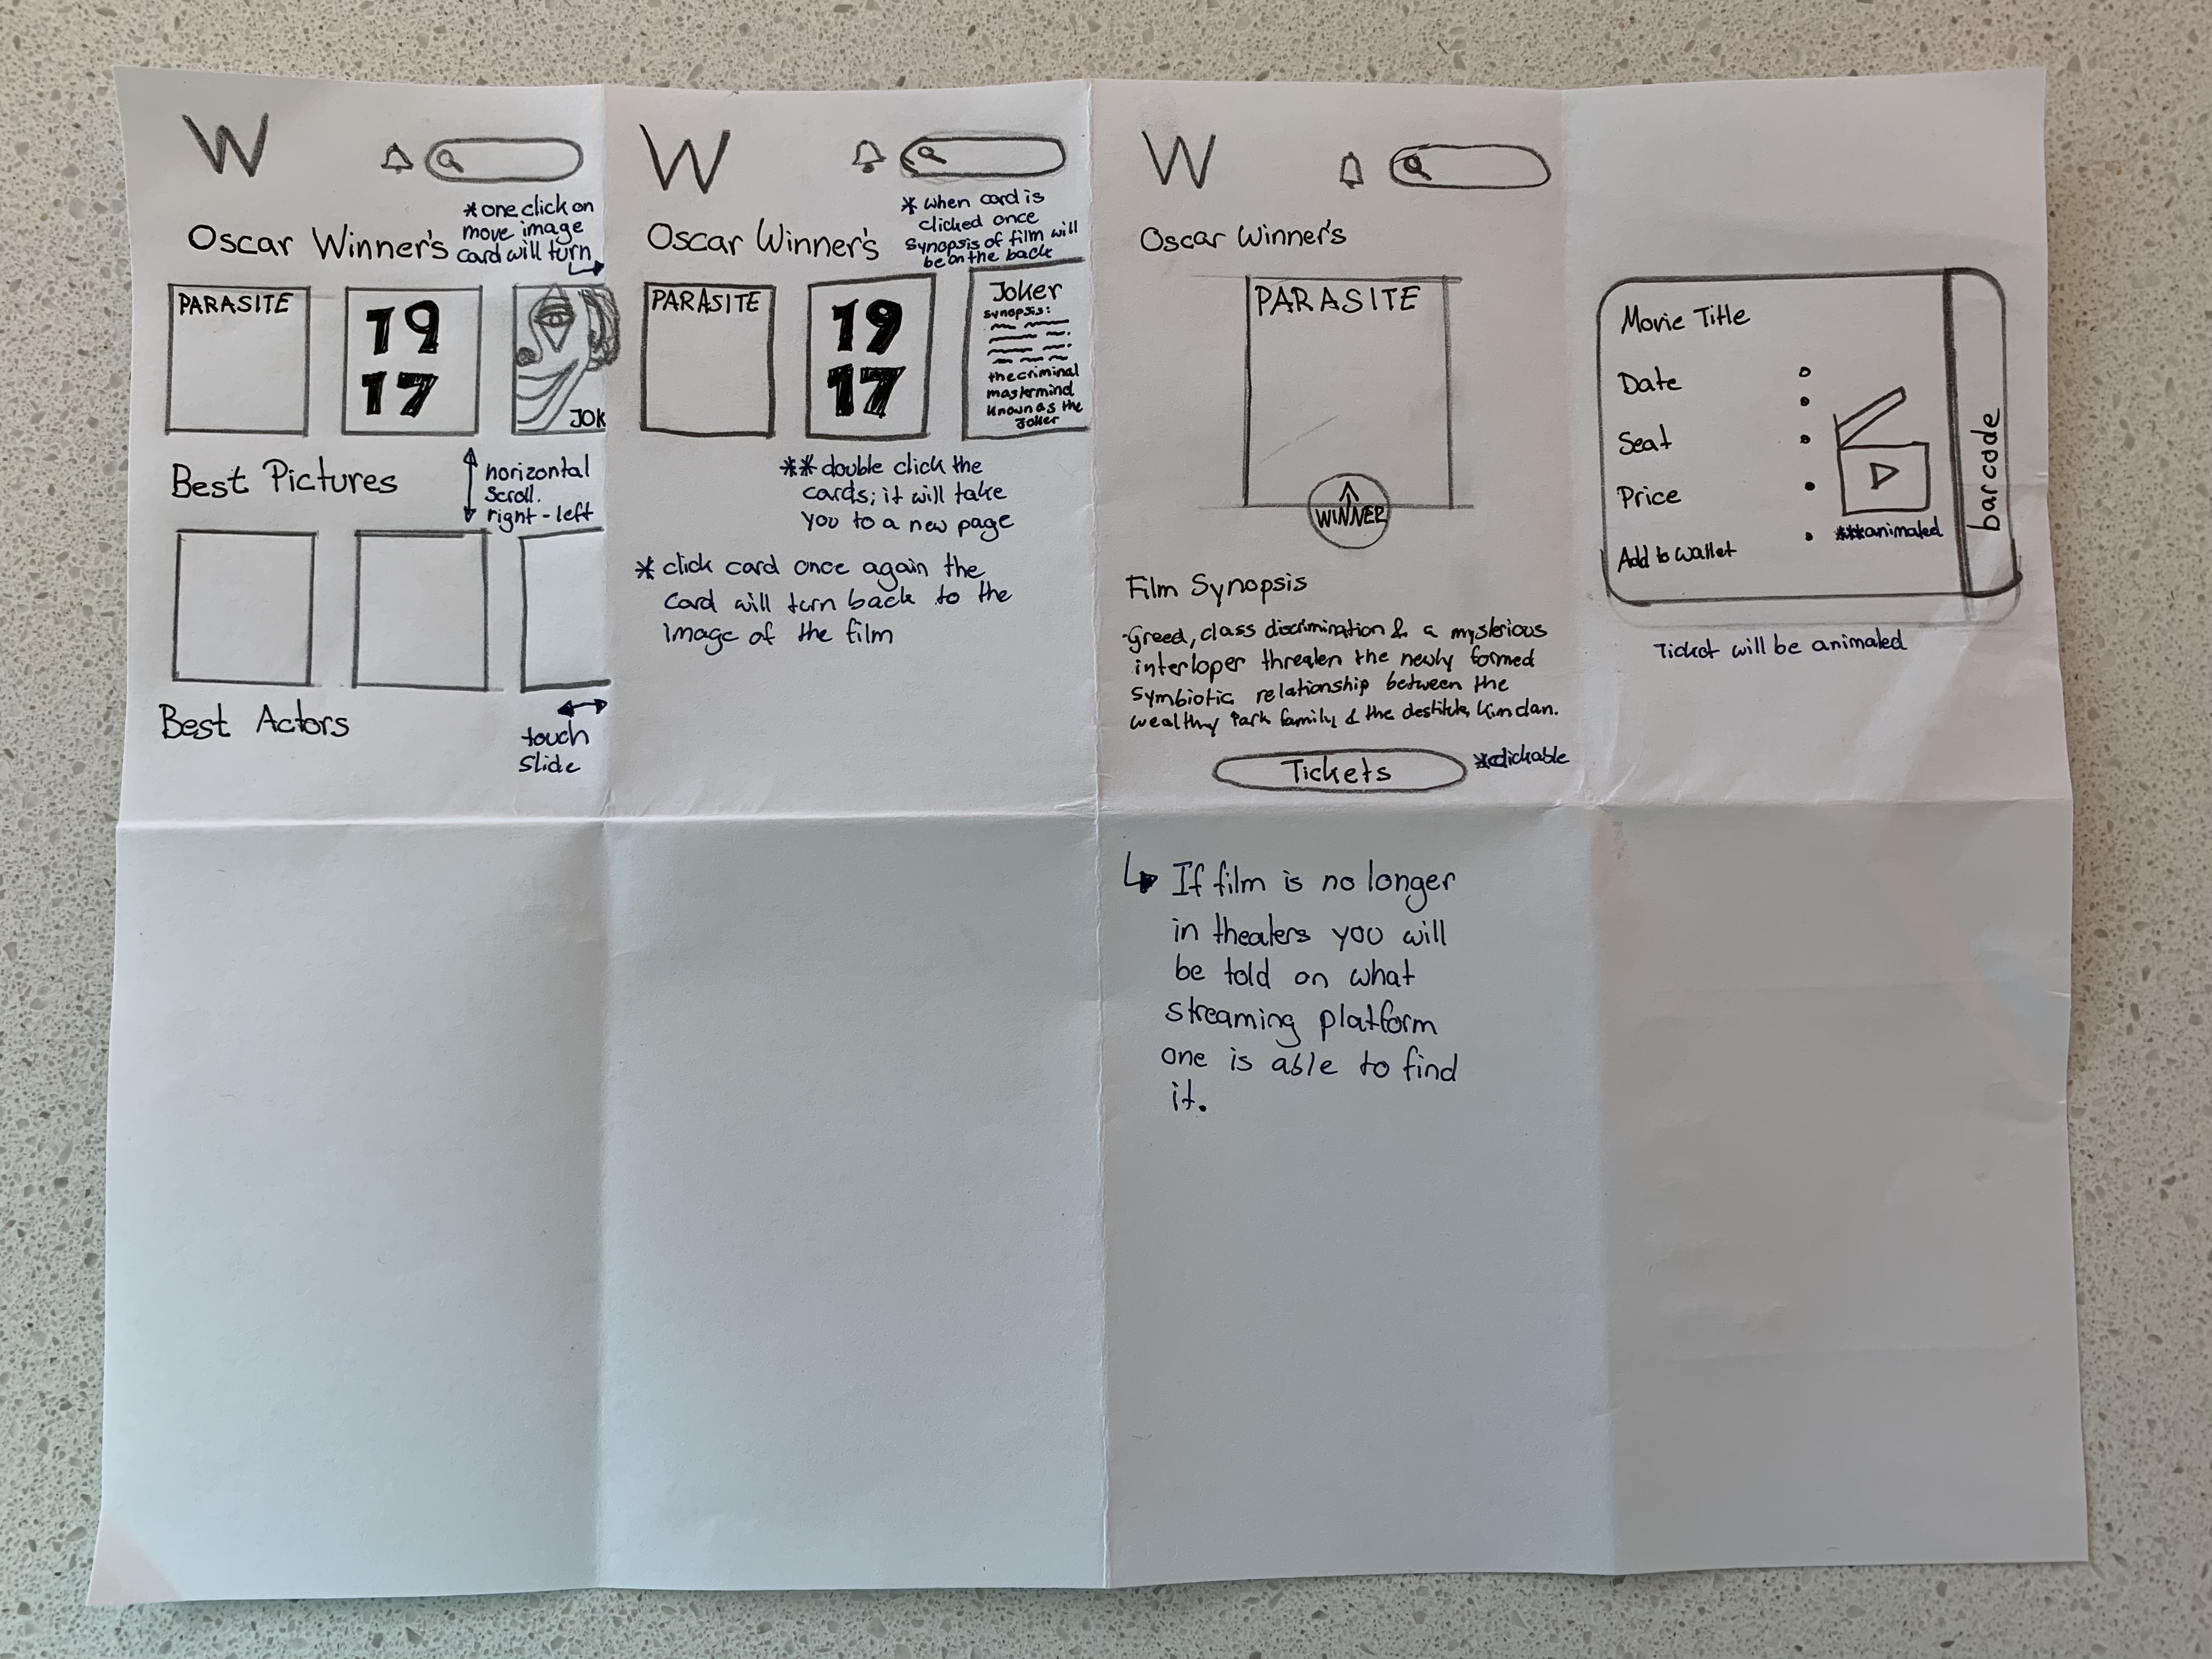 W
Oscar Winner's
*one click on
move image
card will turn
PARASITE
19
17
JOK
Best Pictures
horizontal
scroll.
right-left
Best Actors
touch
slide
W
Oscar Winner's
* when card is
clicked once
Synopsis of film will
be on the back
PARASITE
19
17
Joker
synopsis:
the criminal
mastermind
known as the
Joker
** double click the
cards; it will take
you to a new page
* click card once again the
card will turn back to the
image of the film
W
Oscar Winner's
PARASITE
WINNER
Film Synopsis
-Greed, class discrimination & a mysterious
interloper threaten the newly formed
symbiotic relationship between the
wealthy Park family & the destitute Kim clan.
Tickets
*clickable
If film is no longer
in theaters you will
be told on what
streaming platform
one is able to find
it.
Movie Title
Date
Seat
Price
Add to wallet
***animated
barcode
Ticket will be animated